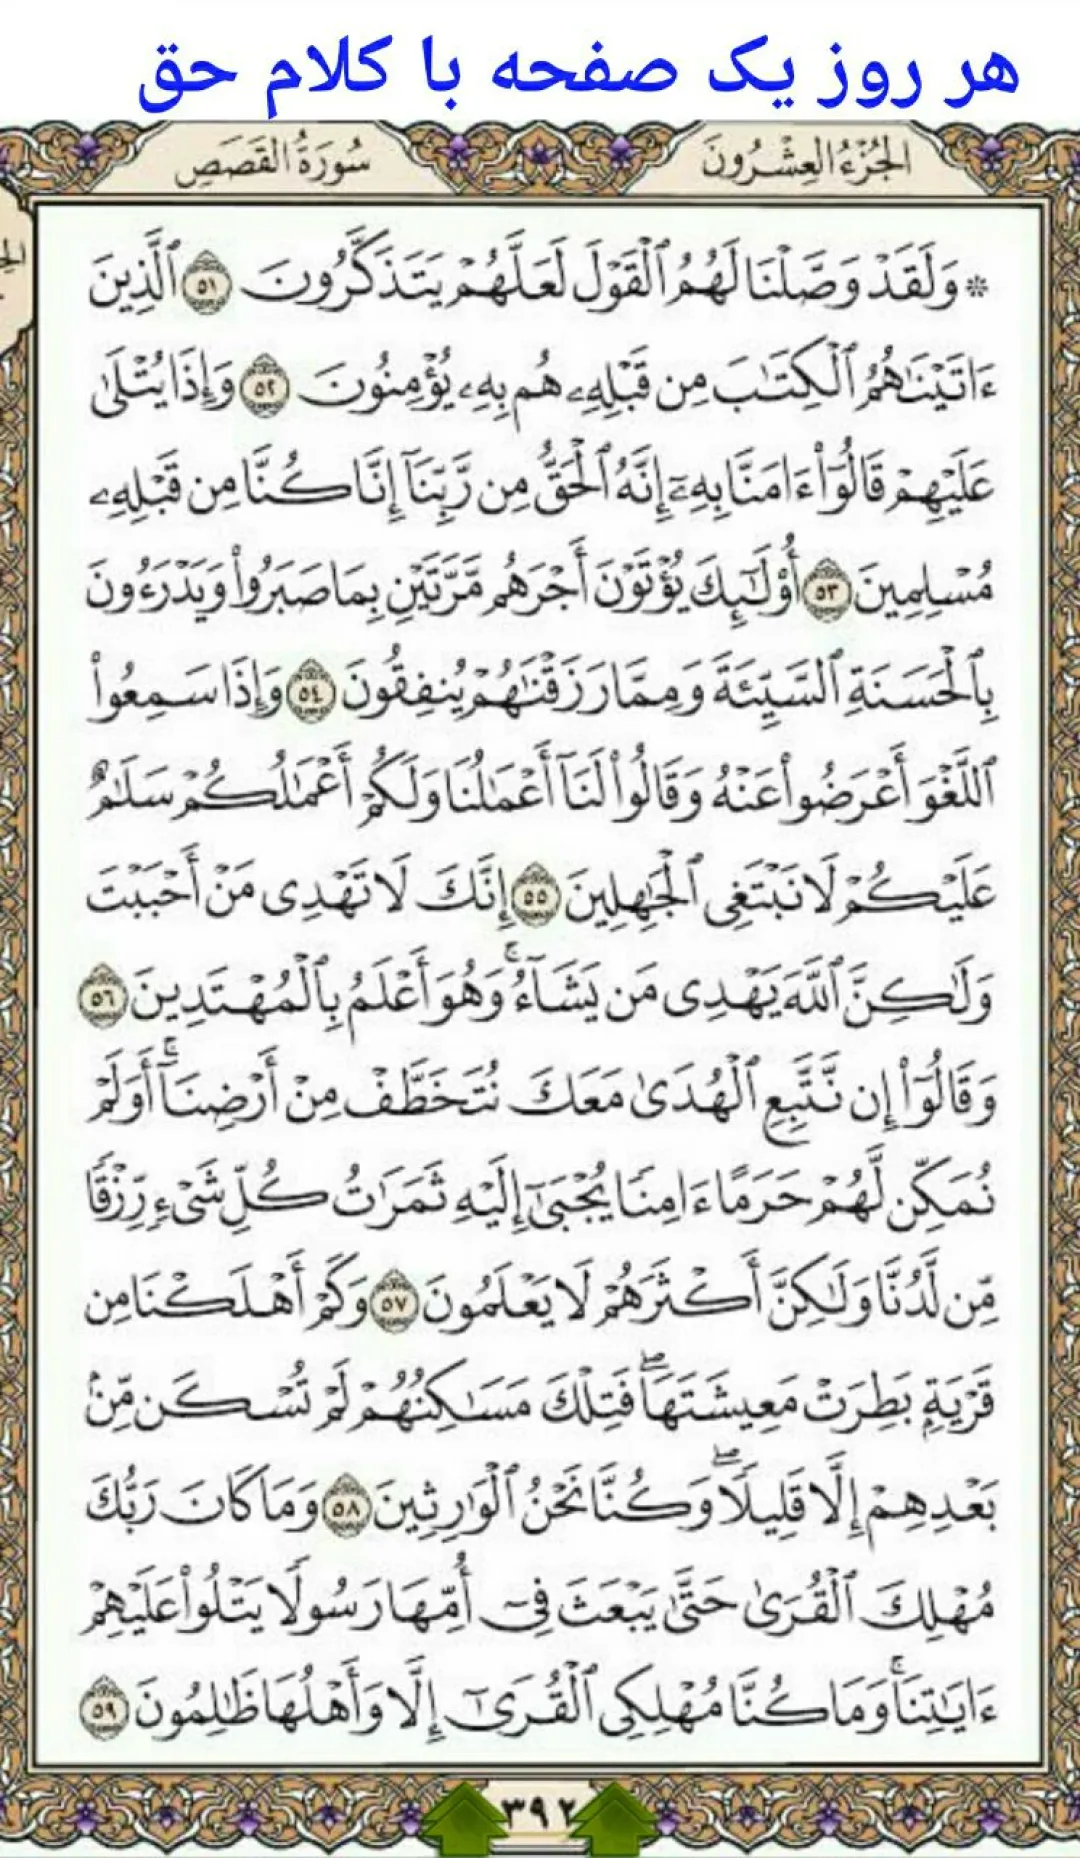 هر روز یک صفحه با کلام حق
الجُزْءُ العِشْرُونَ
سُورَةُ القَصَصِ
۞ وَلَقَدْ وَصَّلْنَا لَهُمُ ٱلْقَوْلَ لَعَلَّهُمْ يَتَذَكَّرُونَ ٥١ ٱلَّذِينَ
ءَاتَيْنَٰهُمُ ٱلْكِتَٰبَ مِن قَبْلِهِۦ هُم بِهِۦ يُؤْمِنُونَ ٥٢ وَإِذَا يُتْلَىٰ
عَلَيْهِمْ قَالُوٓا۟ ءَامَنَّا بِهِۦٓ إِنَّهُ ٱلْحَقُّ مِن رَّبِّنَآ إِنَّا كُنَّا مِن قَبْلِهِۦ
مُسْلِمِينَ ٥٣ أُو۟لَٰٓئِكَ يُؤْتَوْنَ أَجْرَهُم مَّرَّتَيْنِ بِمَا صَبَرُوا۟ وَيَدْرَءُونَ
بِٱلْحَسَنَةِ ٱلسَّيِّئَةَ وَمِمَّا رَزَقْنَٰهُمْ يُنفِقُونَ ٥٤ وَإِذَا سَمِعُوا۟
ٱللَّغْوَ أَعْرَضُوا۟ عَنْهُ وَقَالُوا۟ لَنَآ أَعْمَٰلُنَا وَلَكُمْ أَعْمَٰلُكُمْ سَلَٰمٌ
عَلَيْكُمْ لَا نَبْتَغِى ٱلْجَٰهِلِينَ ٥٥ إِنَّكَ لَا تَهْدِى مَنْ أَحْبَبْتَ
وَلَٰكِنَّ ٱللَّهَ يَهْدِى مَن يَشَآءُ ۚ وَهُوَ أَعْلَمُ بِٱلْمُهْتَدِينَ ٥٦
وَقَالُوٓا۟ إِن نَّتَّبِعِ ٱلْهُدَىٰ مَعَكَ نُتَخَطَّفْ مِنْ أَرْضِنَآ ۚ أَوَلَمْ
نُمَكِّن لَّهُمْ حَرَمًا ءَامِنًا يُجْبَىٰٓ إِلَيْهِ ثَمَرَٰتُ كُلِّ شَىْءٍ رِّزْقًا
مِّن لَّدُنَّا وَلَٰكِنَّ أَكْثَرَهُمْ لَا يَعْلَمُونَ ٥٧ وَكَمْ أَهْلَكْنَا مِن
قَرْيَةٍۭ بَطِرَتْ مَعِيشَتَهَا ۖ فَتِلْكَ مَسَٰكِنُهُمْ لَمْ تُسْكَن مِّنۢ
بَعْدِهِمْ إِلَّا قَلِيلًا ۖ وَكُنَّا نَحْنُ ٱلْوَٰرِثِينَ ٥٨ وَمَا كَانَ رَبُّكَ
مُهْلِكَ ٱلْقُرَىٰ حَتَّىٰ يَبْعَثَ فِىٓ أُمِّهَا رَسُولًا يَتْلُوا۟ عَلَيْهِمْ
ءَايَٰتِنَا ۚ وَمَا كُنَّا مُهْلِكِى ٱلْقُرَىٰٓ إِلَّا وَأَهْلُهَا ظَٰلِمُونَ ٥٩
٣٩٢